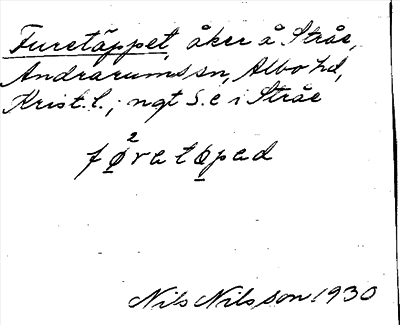 Furetäppet, åker å Stråe,
Andrarums sn, Albo hd,
Krist. l.; ngt S.e i Stråe
fø²ratøpad
Nils Nilsson 1930